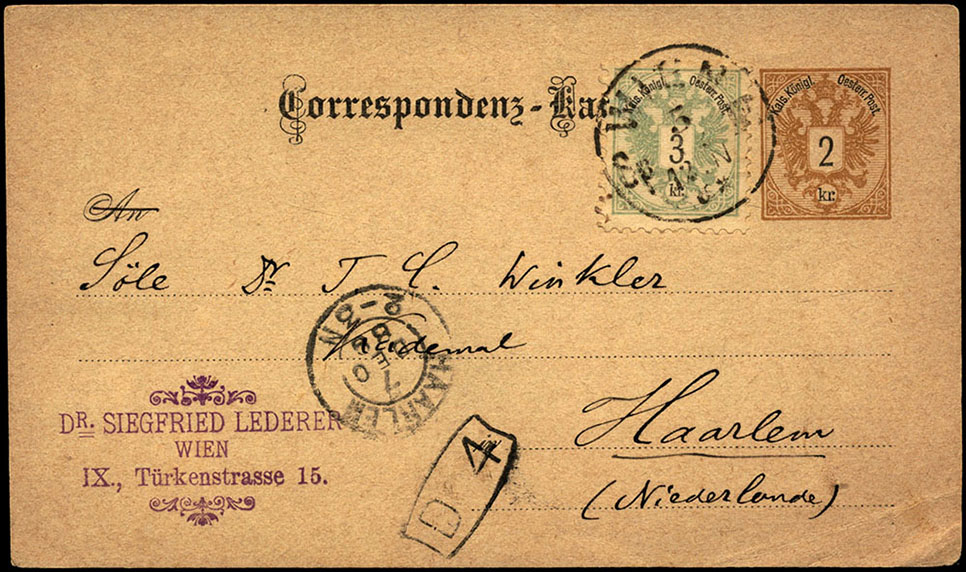 Correspondenz-Ka
Kais. Königl. Oesterr. Post.
3
kr.
Kais. Königl. Oesterr. Post.
2
kr.
An
Söle Dr T. C. Winkler
HAARLEM
7 DEC
2-3N
Haarlem
(Niederlande)
DR. SIEGFRIED LEDERER
WIEN
IX., Türkenstrasse 15.
D 4